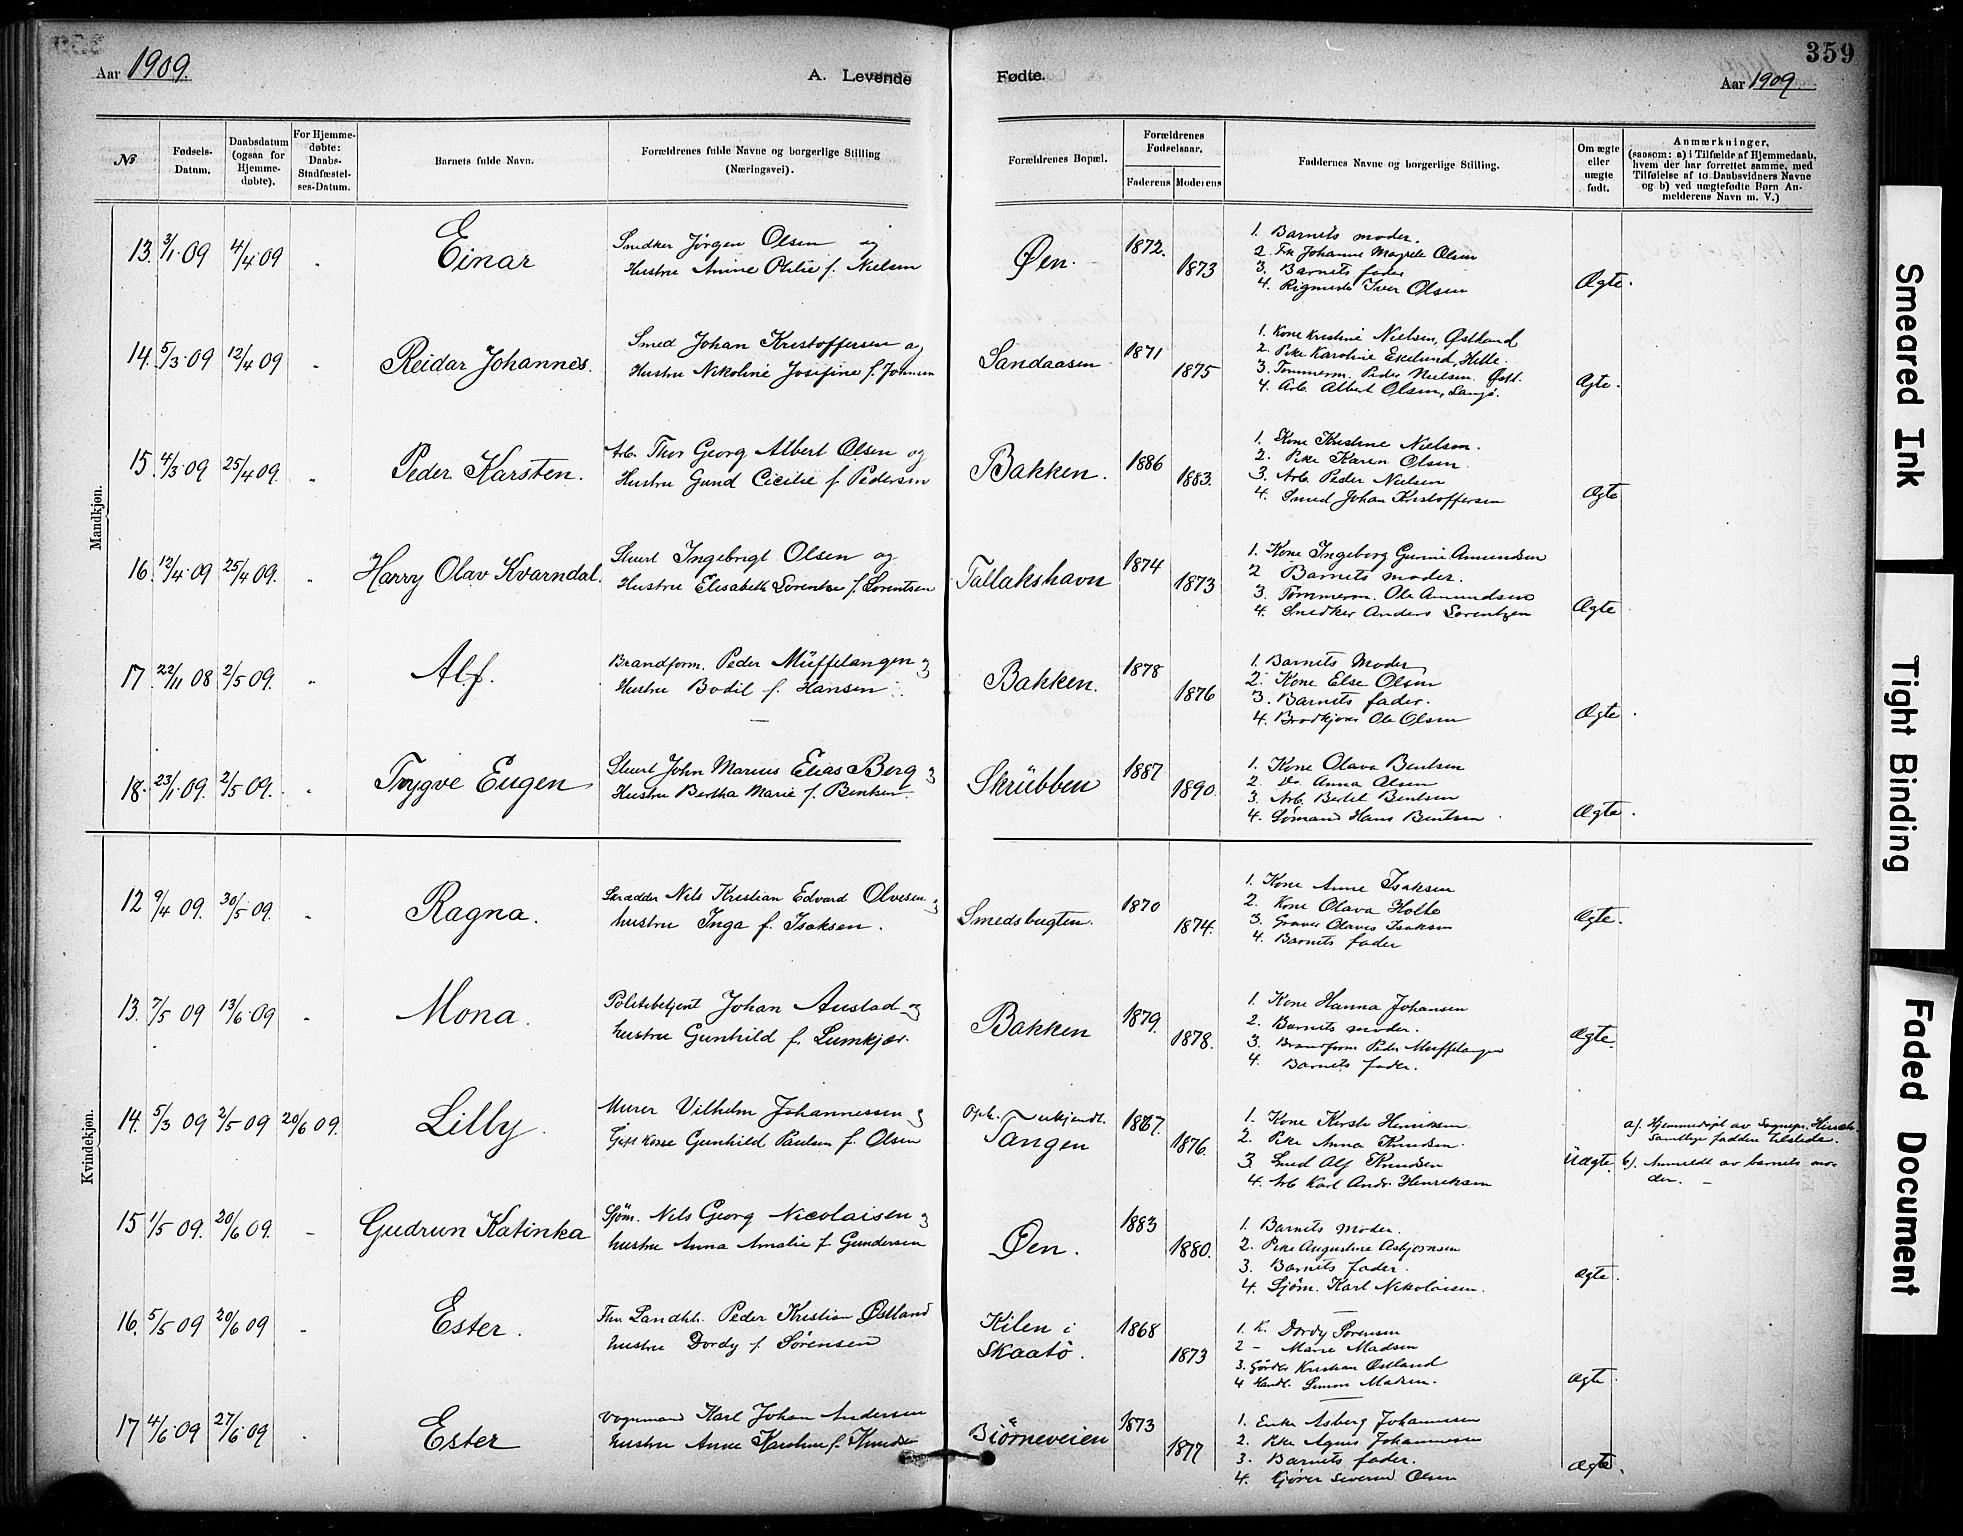 Aar 1909.
A. Levende Fødte.
359
Aar 1909
№
Fødsels-Datum.
Daabsdatum (ogsaa for Hjemmedøbte).
For Hjemmedøbte: Daabs-Stadfæstelses-Datum.
Barnets fulde Navn.
Forældrenes fulde Navne og borgerlige Stilling (Næringsvei).
Forældrenes Bopæl.
Forældrenes Fødselsaar.
Faderens Moderens
Faddernes Navne og borgerlige Stilling.
Om ægte eller uægte født.
Anmærkninger,
(saasom: a) i Tilfælde af Hjemmedaab,
hvem der har forrettet samme, med
Tilføielse af to Daabsvidners Navne
og b) ved uægtefødte Børn An-
melderens Navn m. V.)
Mandkjøn.
13. 3/1 09 4/4 09 Einar
Snedker Jørgen Olsen og
Hustru Anine Otilie f. Nielsen
Øen. 1872. 1873
1. Barnets moder.
2. Frk Johanne Magrete Olsen
3. Barnets fader
4. Rigmester Iver Olsen
Ægte.
14. 5/3 09 12/4 09 Reidar Johannes.
Smed Johan Kristoffersen og
Hustru Nikoline Josefine f. Johnsen
Sandaasen 1871 1875
1. Kone Kristine Nielsen, Østlund
2. Pike Karoline Ekelund, Helle.
3. Tømmerm. Peder Nielsen. Østl.
4. Arb. Albert Olsen, Langø.
Ægte.
15. 4/3 09 25/4 09. Peder Karsten.
Arb. Thor Georg Albert Olsen og
Hustru Gund Cecilie f. Pedersen
Bakken. 1886 1883.
1. Kone Kristine Nielsen.
2. Pike Karen Olsen.
3. Arb. Peder Nielsen
4. Smed Johan Kristoffersen
Ægte
16. 12/4 09 25/4 09. Harry Olav Kvarndal.
Stuert Ingebrigt Olsen og
Hustru Elisabeth Lorentse f. Lorentsen
Tallakshavn 1874 1873
1. Kone Ingeborg Gurine Amundsen
2 Barnets moder.
3. Tømmerm. Ole Amundsen
4. Snedker Anders Lorentzen
Ægte
17. 22/11 08 2/5 09. Alf.
Brandform. Peder Müffelangen og
Hustru Bodil f. Hansen
Bakken. 1878 1876
1. Barnets Moder
2. Kone Else Olsen
3. Barnets fader.
4. Brødkjører Ole Olsen
Ægte.
18. 23/1 09. 2/5 09. Trygve Eugen
Stuert John Marius Elias Berg og
Hustru Bertha Marie f. Bentsen.
Skrübben 1887 1890.
1. Kone Olava Bentsen
2. Do Anna Olsen
3. Arb. Bertel Bentsen
4. Sømand Hans Bentsen.
Ægte.
Kvindekjøn.
12 9/4 09. 30/5 09. Ragna.
Skrædder Nils Kristian Edvard Olvesen og
hustru Inga f. Isaksen.
Smedsbugten. 1870 1874.
1. Kone Anne Isaksen
2. Kone Olava Holte
3. Graver Olaves Isaksen
4. Barnets fader
Ægte.
13. 7/5 09 13/6 09 Mona.
Politibetjent Johan Austad og
hustru Gunhild f. Lumkjær.
Bakken 1879. 1878.
1. Kone Hanna Johansen
2. Barnets moder.
3. Brandform Peder Muffelangen
4. Barnets fader.
Ægte.
14. 5/3 09 2/5 09 20/6 09. Lilly.
Murer Vilhelm Johannessen og
Gift kone Gunhild Paulsen f. Olsen
Oph. ukjendt.
Tangen 1867. 1876.
1. Kone Kirste Henriksen
2. Pike Anna Knudsen.
3. Smed Alf Knudsen
4. Arb Karl Andr. Henriksen
Uægte.
a). Hjemmedøpt av Sognepr.
Samtlige faddere tilstede.
b). Anmeldt av barnets mo-
der. –
15 1/5 09. 20/6 09. – Gudrun Katinka
Sjøm. Nils Georg Nicolaisen og
hustru Anna Amalie f. Gundersen
Øen. 1883 1880.
1. Barnets moder.
2. Pike Augustine Asbjørnsen
3. Barnets fader.
4. Sjøm. Karl Nikolaisen.
Ægte.
16. 5/5 09 20/6 09 Ester.
Fhv. Landhl. Peder Kristian Østland
hustru Dordy f. Sørensen
Kilen i
Skaatø. 1868 1873
1. K. Dordy Sørensen
2 – Marie Madsen
3. Gårdbr Kristian Østland
4 Handl. Simon Madsen.
Ægte.
17 4/6 09 27/6 09 Ester
Vognmand Karl Johan Andersen
hustru Anne Karoline f. Knuds
Bjørneveien 1873 1877
1. Enke Asberg Johannesen
2. Pike Agnes Johannesen
3. Barnets fader.
4. Kjører Severin Olsen
Ægte.
Smeared Ink
Tight Binding
Faded Document